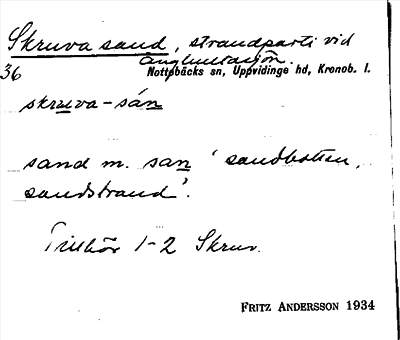 Skruva sand, strandparti vid
Änghultasjön.
36 Nottebäcks sn, Uppvidinge hd, Kronob. l.
skruva-sán
sand m. san 'sandbotten,
sandstrand'.
Tillhör 1-2 Skruv.
FRITZ ANDERSSON 1934